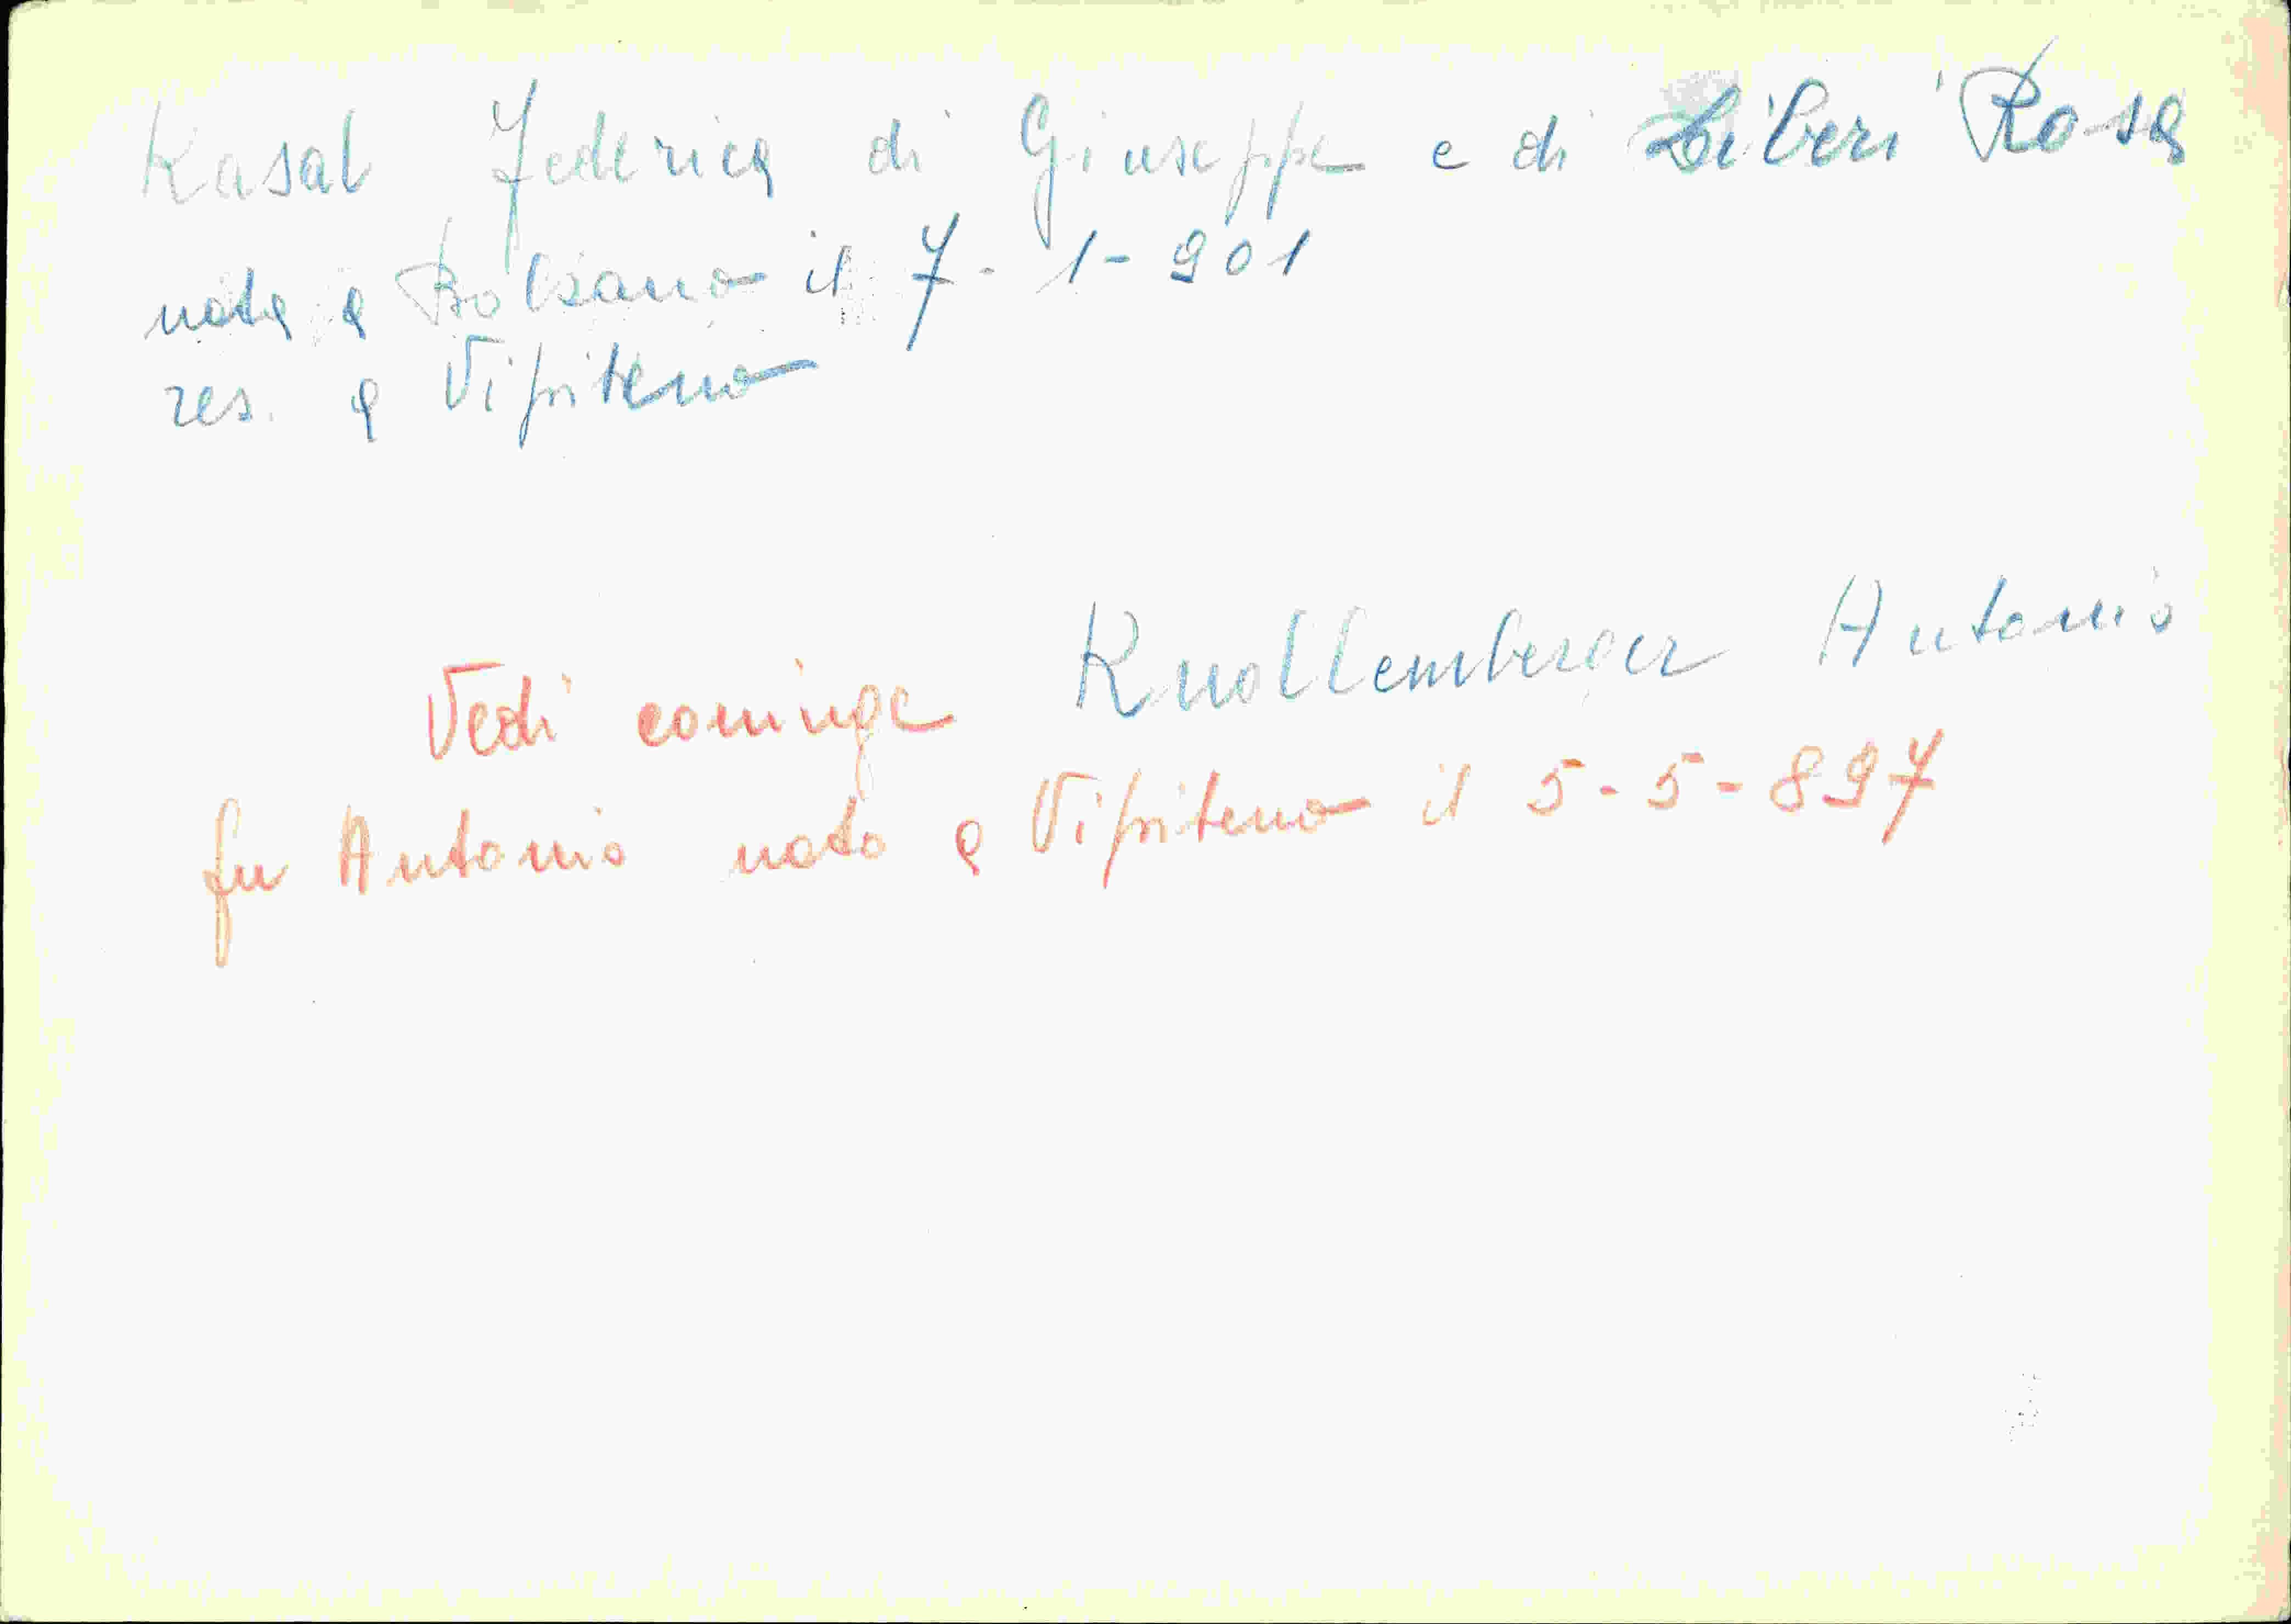 Kasal Federica di Giuseppe e di Liberi Rosa
nata a Bolzano il 7-1-901
res. a Vipiteno
Vedi coniuge Knollemberger Antonio
fu Antonio nato a Vipiteno il 5-5-897